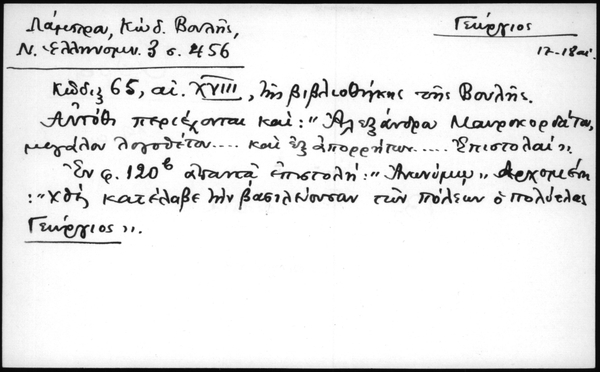 Λάμπρου, Κώδ. Βουλῆς,
Ν. Ἑλληνομν. 3 σ. 456
Γεώργιος
17-18 αἰ.
Κῶδιξ 65, αἰ. XVIII, τῆς βιβλιοθήκης τῆς Βουλῆς.
Αὐτόθι περιέχονται καὶ: "Ἀλεξάνδρου Μαυροκορδάτου,
μεγάλου λογοθέτου .... καὶ ἐξ ἀπορρήτων ..... Ἐπιστολαί".
Ἐν φ. 120β ἀπαντᾷ ἐπιστολή: "Ἀνωνύμῳ" ἀρχομένη
: "Χθὲς κατέλαβε τὴν βασιλεύουσαν τῶν πόλεων ὁ πολύτλας
Γεώργιος".